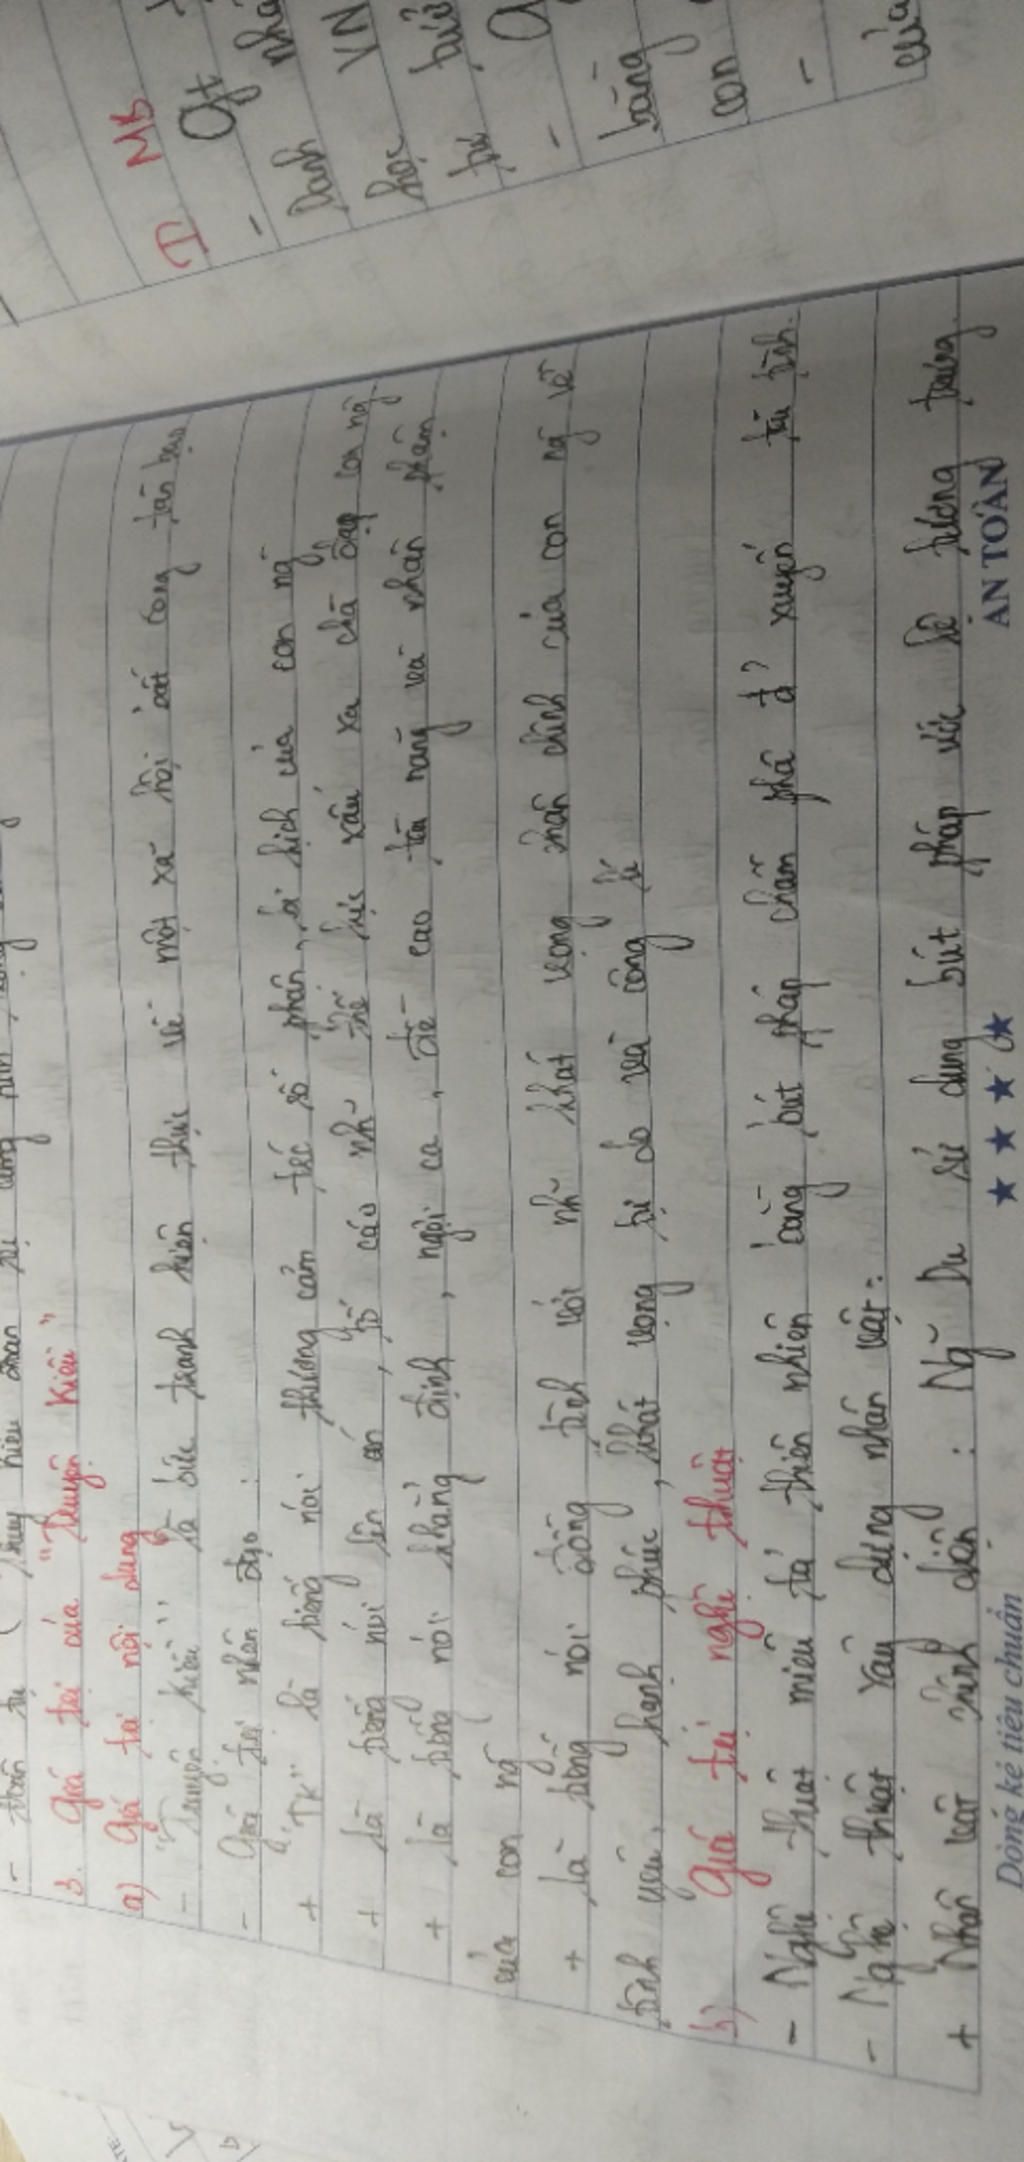 3. Giá trị của "Truyện Kiều"
a) Giá trị nội dung
- "Truyện Kiều" là bức tranh hiện thực về một xã hội bất công tàn bạo
- Giá trị nhân đạo :
+ "TK" là tiếng nói thương cảm trước số phận, bi kịch của con ng
+ là tiếng nói lên án, tố cáo nh~ thế lực xấu xa chà đạp con ng
+ là tiếng nói khẳng định, ngợi ca, đề cao tài năng và nhân phẩm
của con ng
+ là tiếng nói đồng tình với nh~ khát vọng chân chính của con ng về
tình yêu, hạnh phúc, khát vọng tự do và công lí
b) Giá trị nghệ thuật
- Nghệ thuật miêu tả thiên nhiên bằng bút pháp chấm phá điểm xuyết tài tình.
- Nghệ thuật xây dựng nhân vật:
+ Nhân vật chính diện : Ng~ Du sử dụng bút pháp ước lệ tượng trưng.
Dòng kẻ tiêu chuẩn
AN TOÀN
I MB
-
Danh VN
học
-
bằng
con
-
của